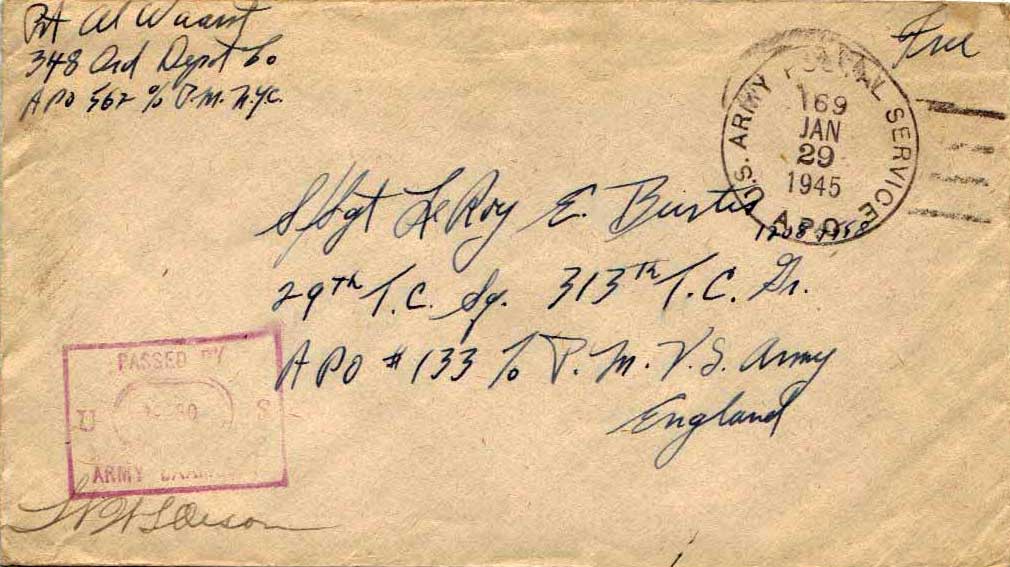 Pvt Al
348 Ord Depot Co
APO 562 % P.M. N.Y.C.
Free
U.S. ARMY POSTAL SERVICE
169
JAN
29
1945
A.P.O.
S/Sgt LeRoy E.
29th T.C. Sq. 313th T.C. Gr.
APO # 133 % P.M. U.S. Army
England
PASSED BY
U S
ARMY EXAMINER